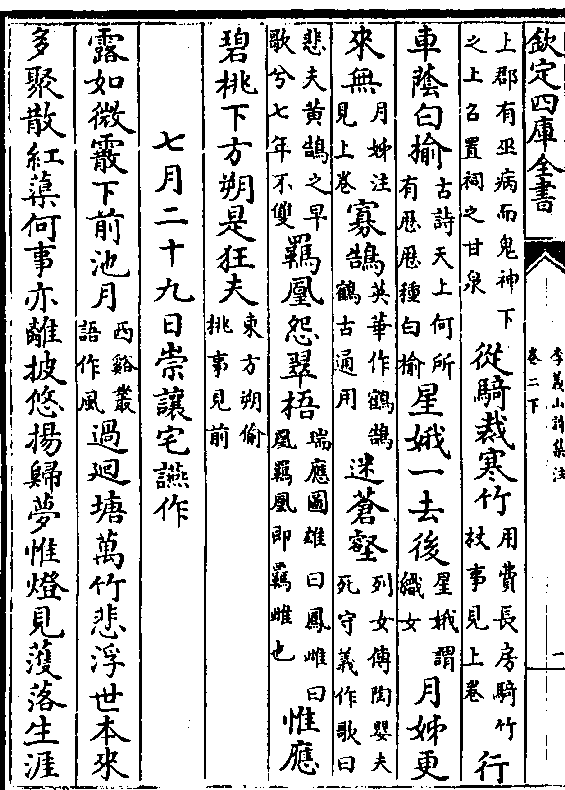 欽定四庫全書
李義山詩集注
卷二下
一
上郡有巫病而鬼神下
之上召置祠之甘泉
從騎裁寒竹
用費長房騎竹
杖事見上卷
行
車蔭白榆
古詩天上何所
有歴歴種白榆
星娥一去後
星娥謂
織女
月姊更
來無
月姊注
見上卷
寡鵠
英華作鶴鵠
鶴古通用
迷蒼壑
列女傳陶嬰夫
死守義作歌曰
悲夫黄鵠之早
歌兮七年不雙
羈凰怨翠梧
瑞應圖雄曰鳳雌曰
凰羈凰即羈雌也
惟應
碧桃下方朔是狂夫
東方朔偷
桃事見前
七月二十九日崇讓宅讌作
露如微霰下前池月
西谿叢
語作風
過廻塘萬竹悲浮世本來
多聚散紅蕖何事亦離披悠揚歸夢惟燈見濩落生涯